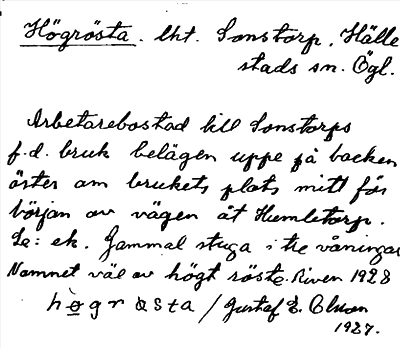 Högrösta. lht. Sonstorp, Hälle
stads sn. Ögl.
Arbetarebostad till Sonstorps
f.d. bruk belägen uppe på backen
öster om brukets plats mitt för
början av vägen åt Humletorp.
Se: ek. Gammal stuga i tre våningar
Namnet väl av högt röste. Riven 1928
högrösta / Gustaf E. Olsson
1927.